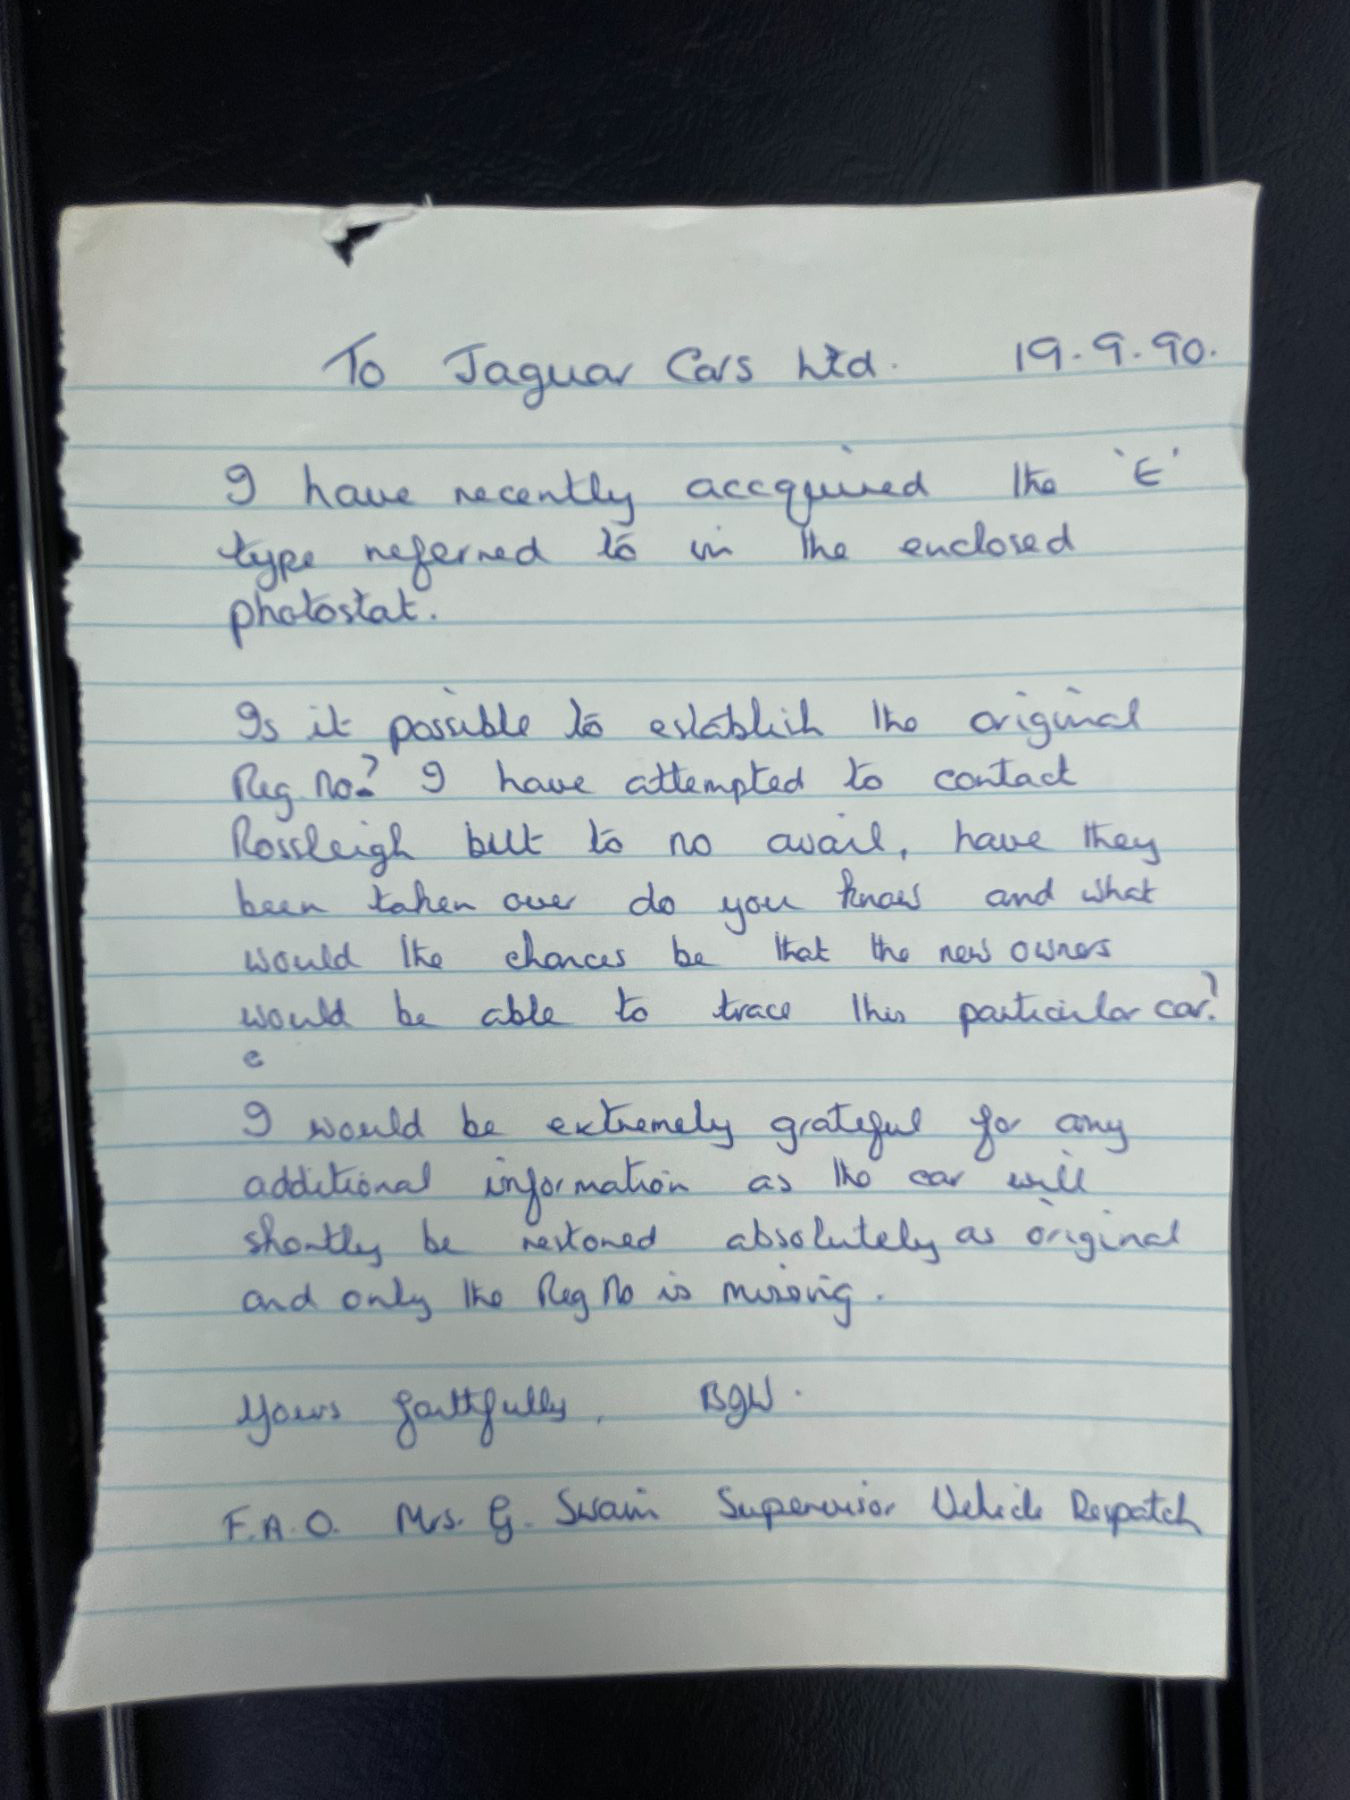 To Jaguar Cars Ltd. 19.9.90.
I have recently accquired the 'E'
type referred to in the enclosed
photostat.
Is it possible to establish the original
Reg. No? I have attempted to contact
Rossleigh but to no avail, have they
been taken over do you know and what
would the chances be that the new owners
would be able to trace this particular car?
e
I would be extremely grateful for any
additional information as the car will
shortly be restored absolutely as original
and only the Reg No is missing.
Yours faithfully, BGW.
F.A.O. Mrs. G. Swain Supervisor Vehicle Despatch